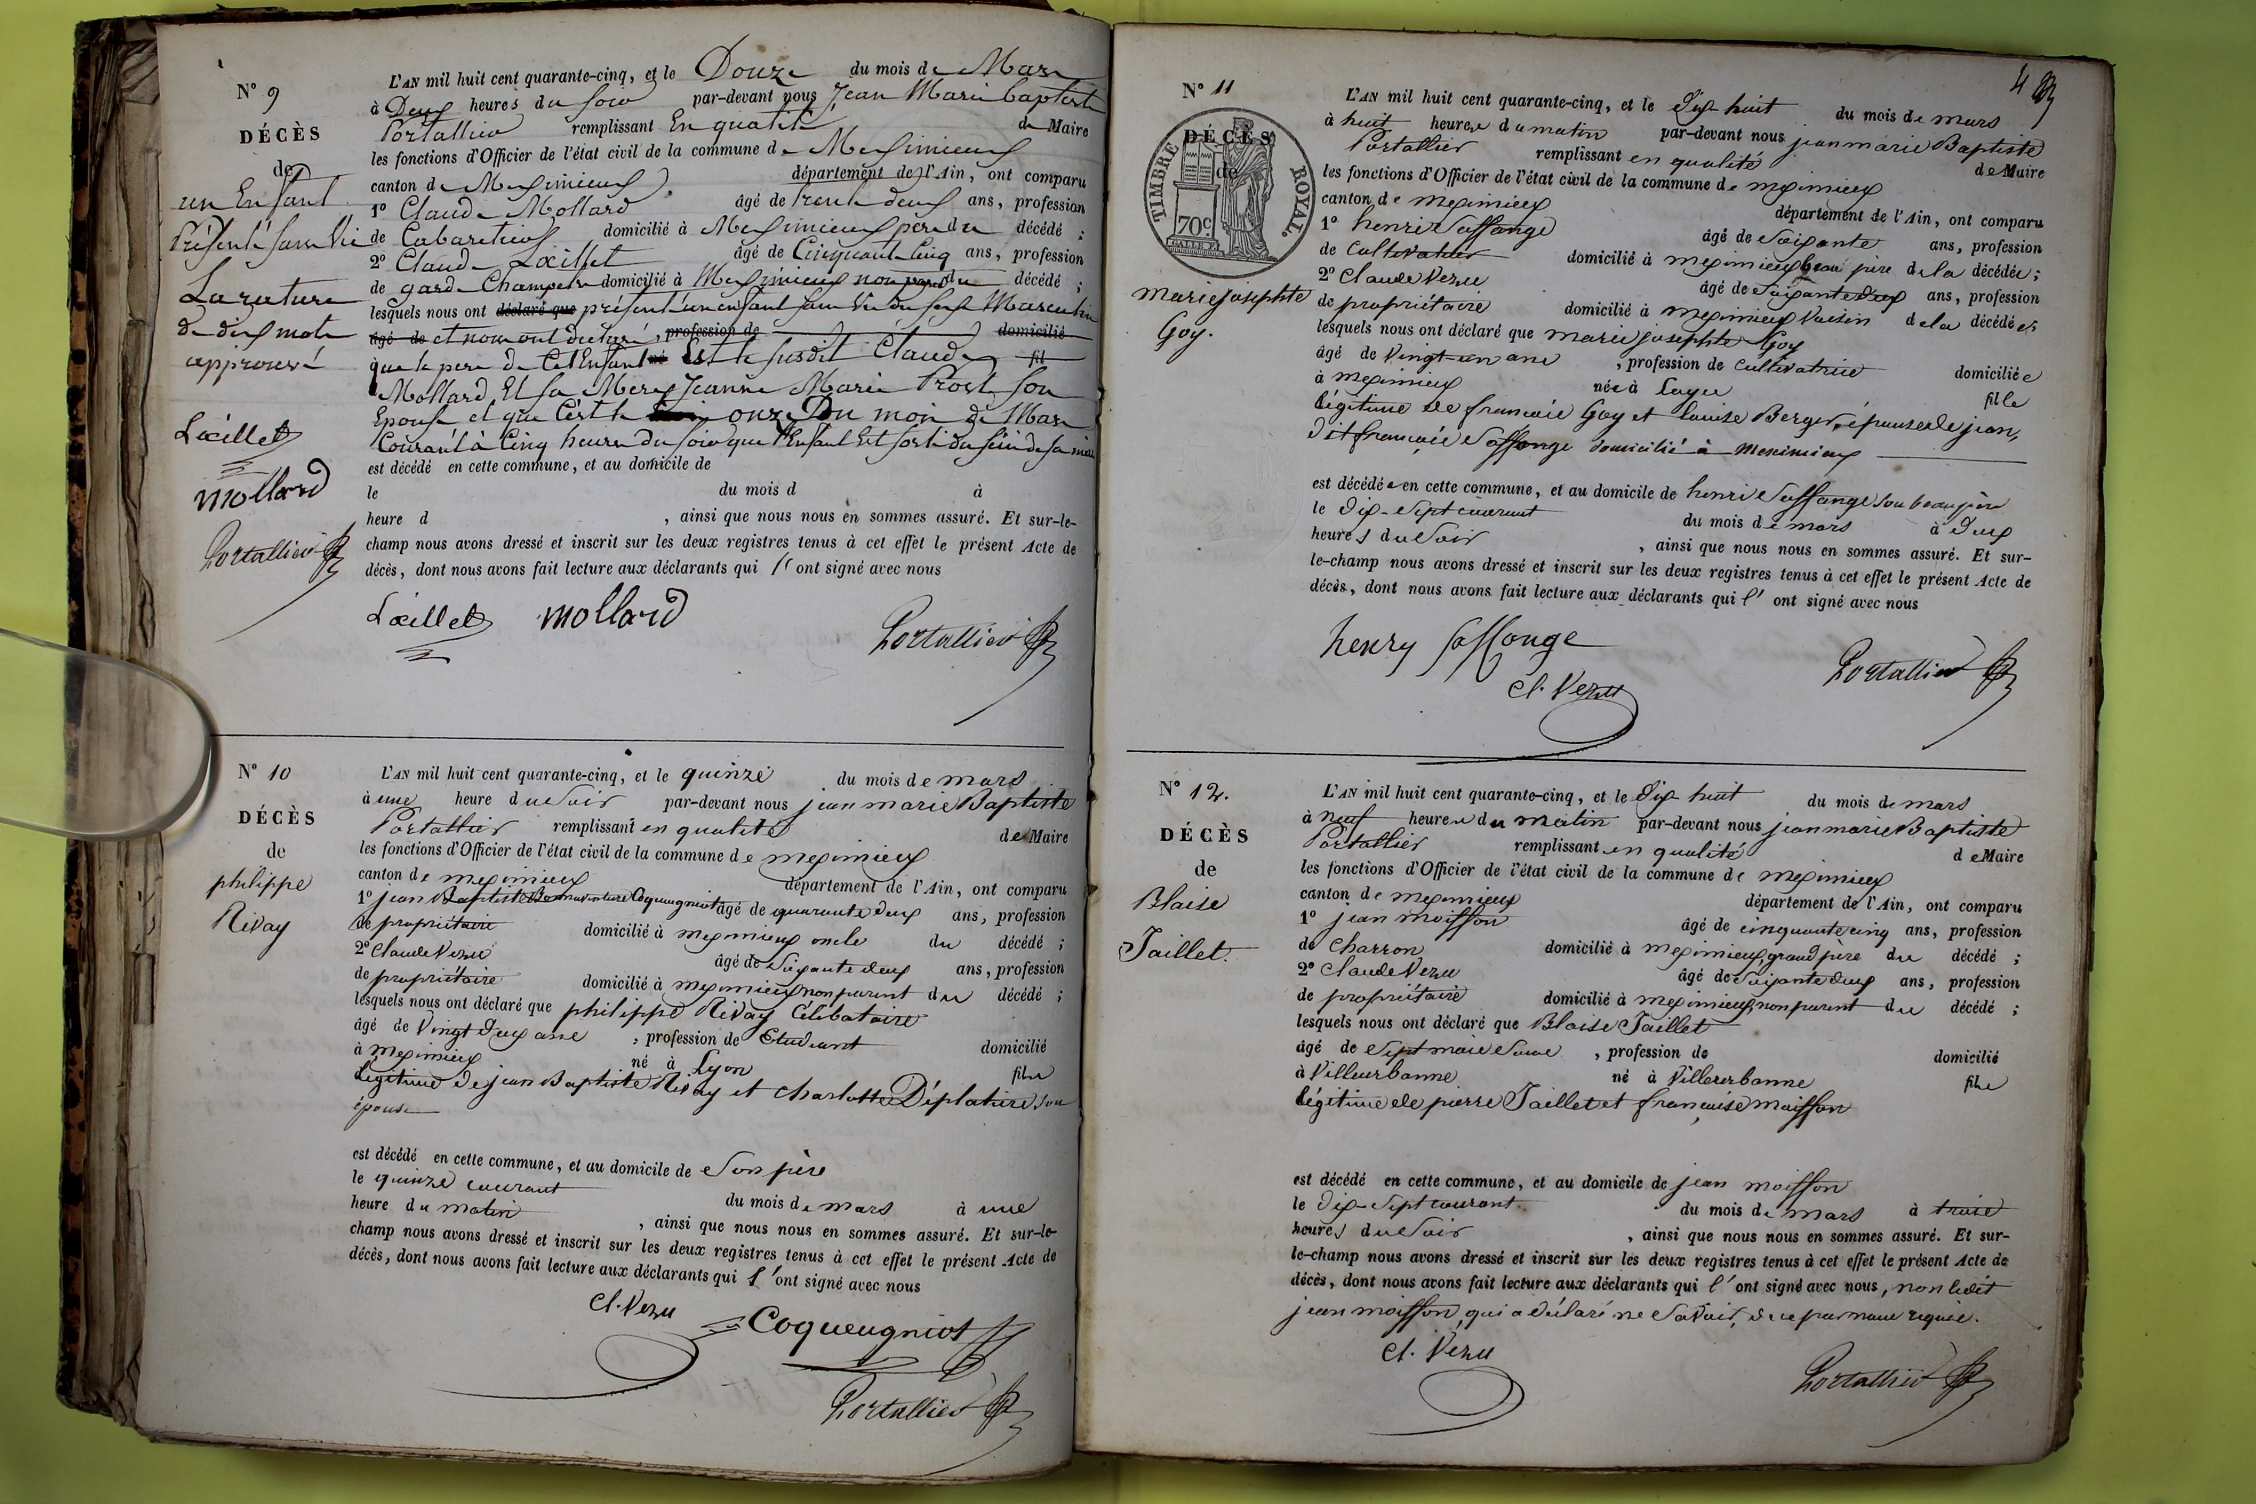 N° 9
DÉCÈS
de
un Enfant
Présenté sans Vie
La rature
de dix mots
approuvé
Lœillet
Mollard
Portallier
L'AN mil huit cent quarante-cinq, et le Douze du mois de Mars
à Deux heures du soir par-devant nous Jean Marie Baptiste
Portallier remplissant En qualité de Maire
les fonctions d'Officier de l'état civil de la commune de Meximieux
canton de Meximieux département de l'Ain, ont comparu
1° Claude Mollard âgé de trente deux ans, profession
de Cabaretier domicilié à Meximieux père du décédé ;
2° Claude Lœillet âgé de Cinquante Cinq ans, profession
de garde Champetre domicilié à Meximieux non parent du décédé ;
lesquels nous ont déclaré que présenté un enfant sans Vie du sexe Masculin
âgé de et nous ont déclaré, profession de domicilié
que le père de Cet Enfant né Est le susdit Claude fil
Mollard Et sa Mere Jeanne Marie Prost son
Epouse et que C'est le onze Du mois de Mars
Courant à Cinq heures du soir que l'Enfant Est sorti du sein de sa mère
est décédé en cette commune, et au domicile de
le du mois d à
heure d , ainsi que nous nous en sommes assuré. Et sur-le-
champ nous avons dressé et inscrit sur les deux registres tenus à cet effet le présent Acte de
décès, dont nous avons fait lecture aux déclarants qui l'ont signé avec nous
Lœillet Mollard
Portallier
N° 10
DÉCÈS
de
philippe
Rivay
L'AN mil huit cent quarante-cinq, et le quinze du mois de mars
à une heure du soir par-devant nous jean marie Baptiste
Portallier remplissant en qualité de Maire
les fonctions d'Officier de l'état civil de la commune de meximieux
canton de meximieux département de l'Ain, ont comparu
1° jean Baptiste Bonnaventure Coqueugniot âgé de quarante deux ans, profession
de propriétaire domicilié à meximieux oncle du décédé ;
2° Claude Vezu âgé de Soixante deux ans, profession
de propriétaire domicilié à meximieux non parent du décédé ;
lesquels nous ont déclaré que philippe Rivay Célibataire
âgé de Vingt deux ans , profession de Etudiant domicilié
à meximieux né à Lyon fils
légitime de jean Baptiste Rivay et Charlotte Déplature son
épouse
est décédé en cette commune, et au domicile de Son père
le quinze courant du mois de mars à une
heure du matin , ainsi que nous nous en sommes assuré. Et sur-le-
champ nous avons dressé et inscrit sur les deux registres tenus à cet effet le présent Acte de
décès, dont nous avons fait lecture aux déclarants qui l'ont signé avec nous
Cl. Vezu Coqueugniot
Portallier
4
N° 11
DÉCÈS
de
TIMBRE ROYAL.
70c.
marie josephte
Goy.
L'AN mil huit cent quarante-cinq, et le dix huit du mois de mars
à huit heures du matin par-devant nous jean marie Baptiste
Portallier remplissant en qualité de Maire
les fonctions d'Officier de l'état civil de la commune de meximieux
canton de meximieux département de l'Ain, ont comparu
1° henri Saffange âgé de Soixante ans, profession
de Cultivateur domicilié à meximieux beau père de la décédée ;
2° Claude Vezu âgé de Soixante deux ans, profession
de propriétaire domicilié à meximieux Voisin de la décédée ;
lesquels nous ont déclaré que marie josephte Goy
âgé de Vingt un ans , profession de Cultivatrice domiciliée
à meximieux née à Loyes fille
légitime de françois Goy et louise Berger, épouse de jean,
dit françois Saffange domicilié à Meximieux
est décédée en cette commune, et au domicile de henri Saffange son beau père
le dix-sept courant du mois de mars à deux
heures du Soir , ainsi que nous nous en sommes assuré. Et sur-
le-champ nous avons dressé et inscrit sur les deux registres tenus à cet effet le présent Acte de
décès, dont nous avons fait lecture aux déclarants qui l'ont signé avec nous
henry Saffonge
Cl. Vezu
Portallier
N° 12.
DÉCÈS
de
Blaise
Taillet.
L'AN mil huit cent quarante-cinq, et le dix huit du mois de mars
à neuf heures du matin par-devant nous jean marie Baptiste
Portallier remplissant en qualité de Maire
les fonctions d'Officier de l'état civil de la commune de meximieux
canton de meximieux département de l'Ain, ont comparu
1° jean moisson âgé de cinquante cinq ans, profession
de Charron domicilié à meximieux, grand père du décédé ;
2° Claude Vezu âgé de Soixante deux ans, profession
de propriétaire domicilié à meximieux, non parent du décédé ;
lesquels nous ont déclaré que Blaise Taillet
âgé de Sept mois , profession de domicilié
à Villeurbanne né à Villeurbanne fils
légitime de pierre Taillet et françoise moisson
est décédé en cette commune, et au domicile de jean moisson
le dix-sept courant du mois de mars à trois
heures du Soir , ainsi que nous nous en sommes assuré. Et sur-
le-champ nous avons dressé et inscrit sur les deux registres tenus à cet effet le présent Acte de
décès, dont nous avons fait lecture aux déclarants qui l'ont signé avec nous, non ledit
jean moisson, qui a déclaré ne Savoir, de ce par nous requis.
Cl. Vezu
Portallier